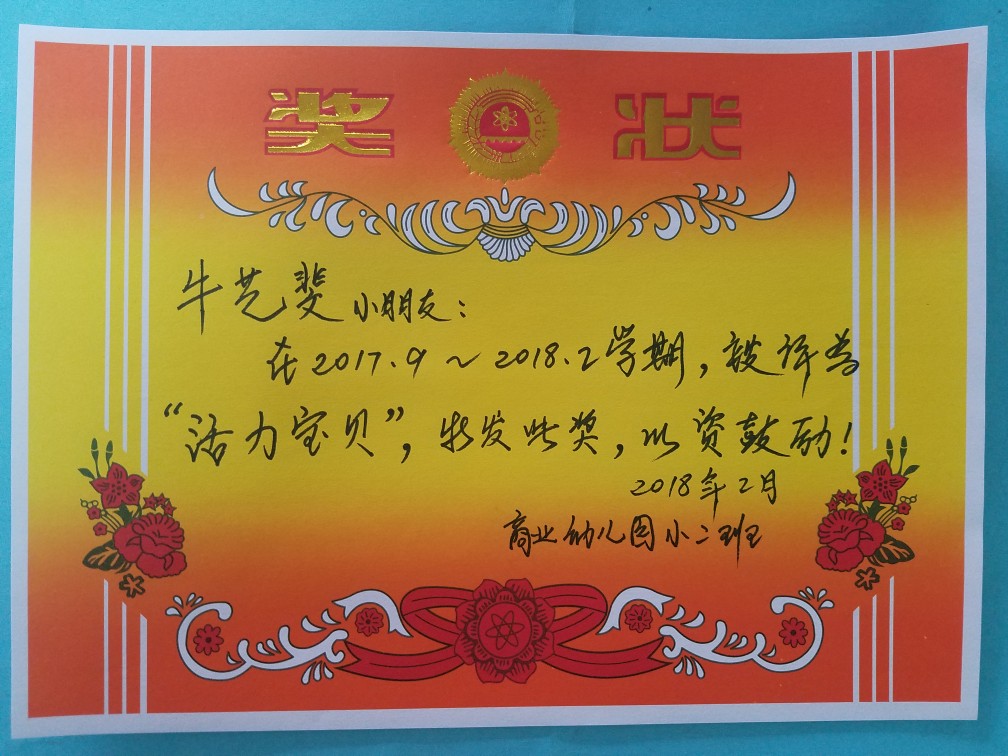 奖状
牛艺斐小朋友：
在2017.9～2018.2学期，被评为
“活力宝贝”，特发此奖，以资鼓励！
2018年2月
商业幼儿园小二班